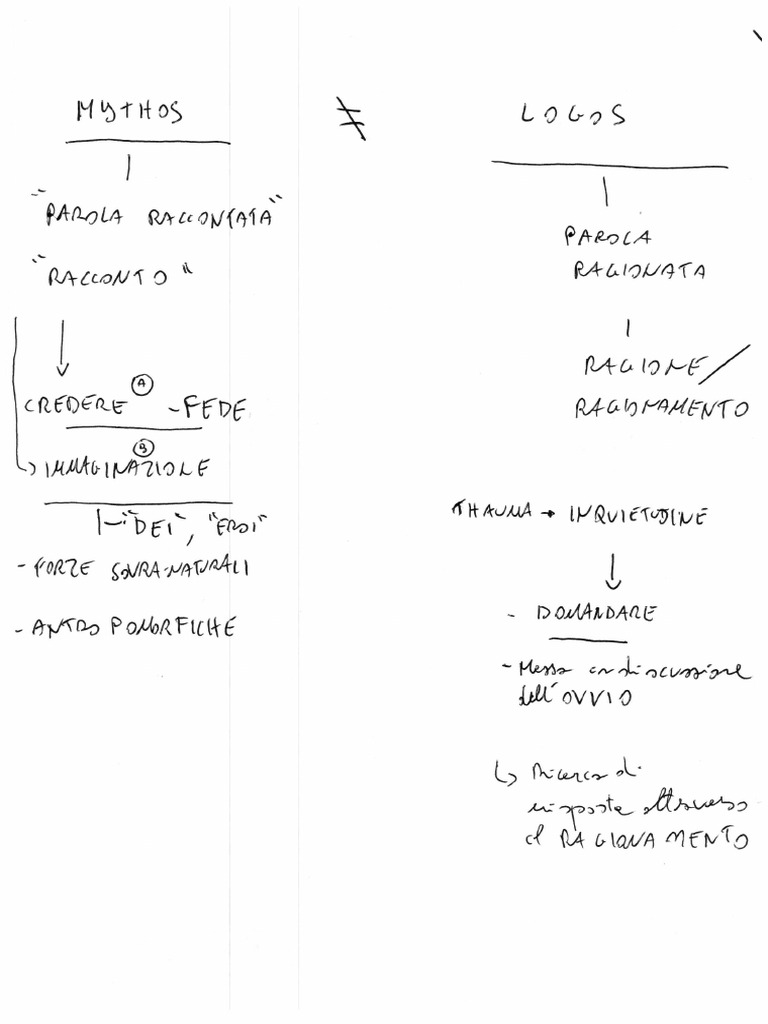 MYTHOS ≠ LOGOS
"PAROLA RACCONTATA"
"RACCONTO"
CREDERE A - FEDE
B
IMMAGINAZIONE
"DEI", "EROI"
- FORZE SOVRA-NATURALI
- ANTROPOMORFICHE
PAROLA
RAGIONATA
RAGIONE/
RAGIONAMENTO
THAUMA → INQUIETUDINE
- DOMANDARE
- Messa in discussione
dell'OVVIO
↳ Ricerca di
risposte attraverso
il RAGIONAMENTO